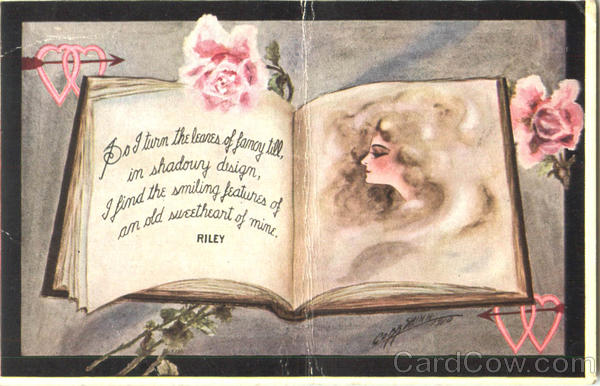 So I turn the leaves of fancy till,
in shadowy design,
I find the smiling features of
an old sweetheart of mine.
RILEY
CardCow.com